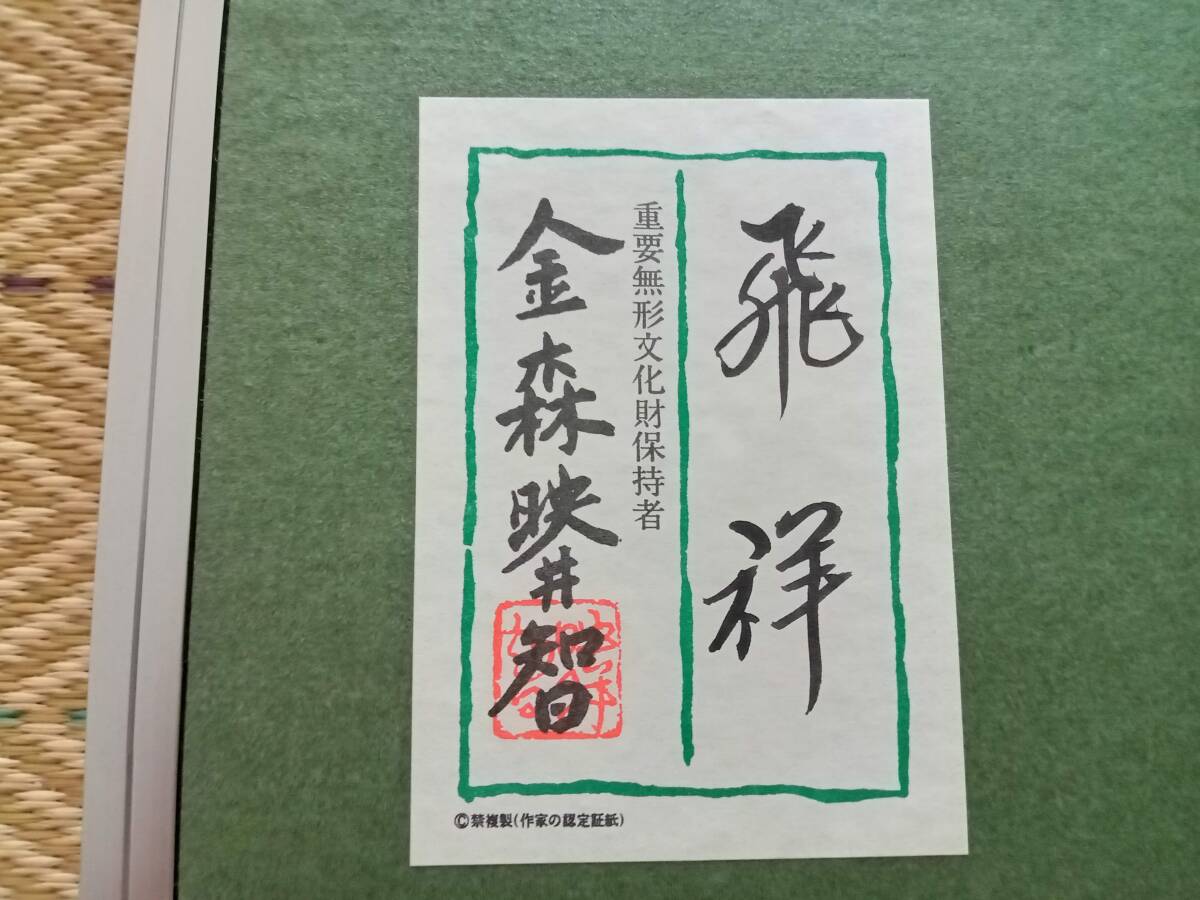 飛祥
重要無形文化財保持者
金森映井智
©禁複製(作家の認定証紙)